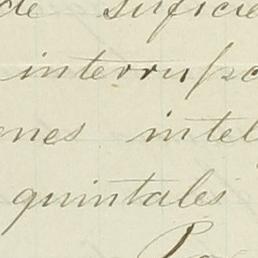 de suficie
interrupc
ones intel
quintales